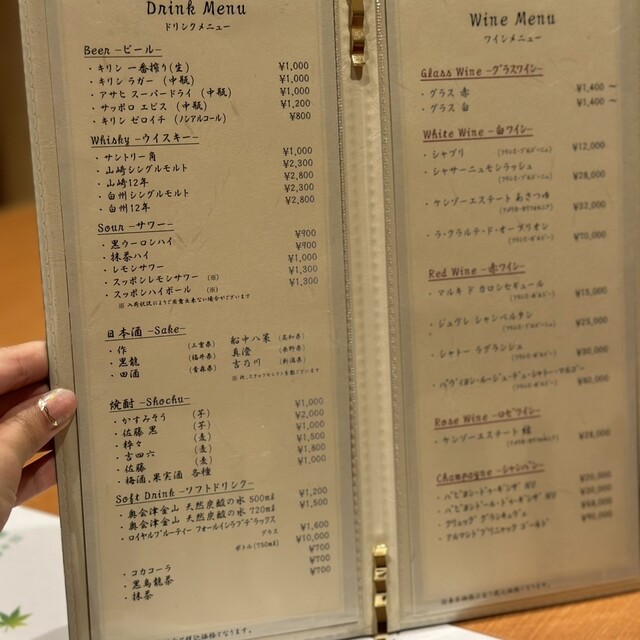 Drink Menu
ドリンクメニュー
Beer -ビール-
・キリン 一番搾り(生) ¥1,000
・キリン ラガー (中瓶) ¥1,000
・アサヒ スーパードライ (中瓶) ¥1,000
・サッポロ エビス (中瓶) ¥1,200
・キリン ゼロイチ (ノンアルコール) ¥800
Whisky -ウイスキー-
・サントリー角 ¥1,000
・山崎シングルモルト ¥2,300
・山崎12年 ¥2,800
・白州シングルモルト ¥2,300
・白州12年 ¥2,800
Sour -サワー-
・黒ウーロンハイ ¥900
・抹茶ハイ ¥900
・レモンサワー ¥1,000
・スッポンレモンサワー (※) ¥1,300
・スッポンハイボール (※) ¥1,300
※ 入荷状況によりご用意出来ない場合がございます
日本酒 -Sake-
・作 (三重県) 船中八策 (高知県)
・黒龍 (福井県) 真澄 (長野県)
・田酒 (青森県) 吉乃川 (新潟県)
焼酎 -Shochu-
・かすみそう (芋) ¥1,000
・佐藤 黒 (芋) ¥2,000
・粋々 (麦) ¥1,000
・吉四六 (麦) ¥1,500
・佐藤 (麦) ¥1,800
・梅酒、果実酒 各種 ¥1,000
Soft Drink -ソフトドリンク-
・奥会津金山 天然炭酸の水 500ml ¥1,200
・奥会津金山 天然炭酸の水 720ml ¥1,500
・ロイヤルブルーティー フォールインラブデラックス
グラス ¥1,600
ボトル(750ml) ¥10,000
・コカコーラ ¥700
・黒烏龍茶 ¥700
・抹茶 ¥700
Wine Menu
ワインメニュー
Glass Wine -グラスワイン-
・グラス 赤 ¥1,400 ～
・グラス 白 ¥1,400 ～
White Wine -白ワイン-
・シャブリ ¥12,000
・シャサーニュモンラッシュ ¥28,000
・ケンゾーエステート あさつゆ ¥32,000
・ラ・クラルテ・ド・オーブリオン ¥70,000
Red Wine -赤ワイン-
・マルキ ド カロンセギュール
・ジュヴレ シャンベルタン ¥25,000
・シャトー ラグランジュ
Rose Wine -ロゼワイン-
・ケンゾーエステート 結
Champagne -シャンパン-
・アルマンドブリニャック ゴールド